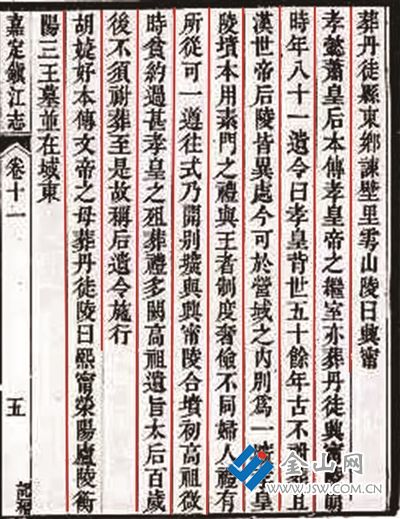 葬丹徒縣東鄉諫壁里雩山陵曰興甯
孝懿蕭皇后本傳孝皇帝之繼室亦葬丹徒興甯陵崩
時年八十一遺令曰孝皇背世五十餘年古不祔葬且
漢世帝后陵皆異處今可於塋域之內別爲一壙孝皇
陵墳本用素門之禮與王者制度奢儉不同婦人禮有
所從可一遵往式乃開別壙與興甯陵合墳初高祖微
時貧約過甚孝皇之殂葬禮多闕高祖遺旨太后百歲
後不須祔葬至是故稱后遺令施行
胡婕妤本傳文帝之母葬丹徒陵曰熙甯榮陽廬陵衡
陽三王墓並在城東
嘉定鎮江志
卷十一
五
金山网
www.JSW.com.cn